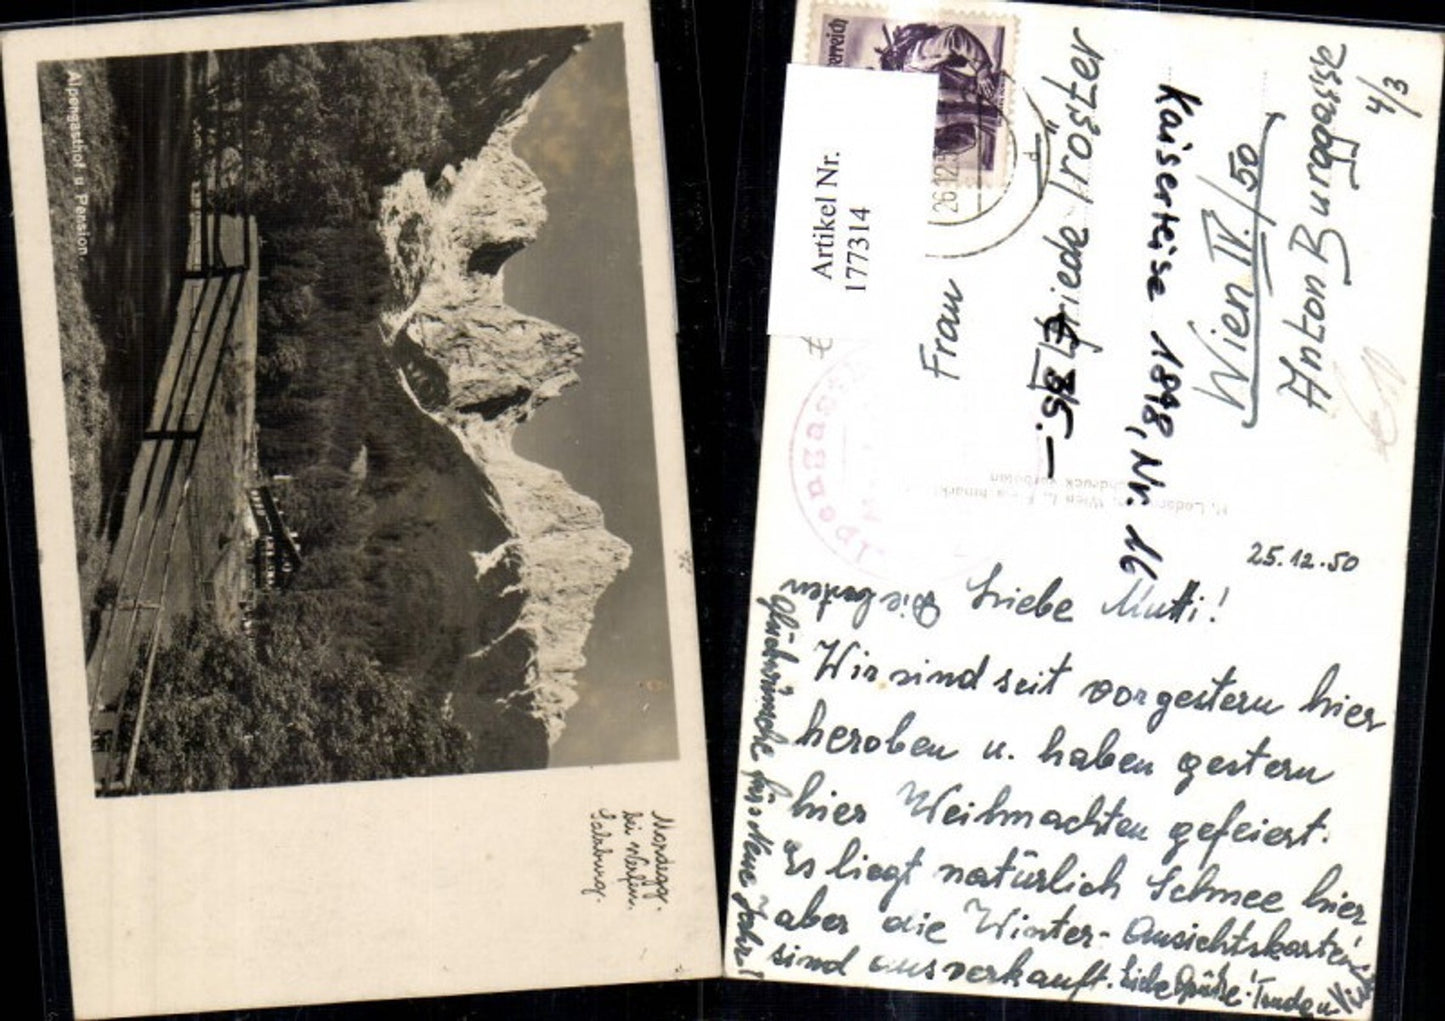 Alpengasthof u Pension
Mordegg.
bei Werfen.
Salzburg.
Artikel Nr.
177314
26.12.5
Frau
Elfriede Troster
€ 35.-
Kaiserkrise 1898, Nr. 16
Wien IV./50
Anton Burggasse
4/3
chdruck verboten
Wien I.,
25.12.50
Liebe Mutti!
Wir sind seit vorgestern hier
heroben u. haben gestern
hier Weihnachten gefeiert.
Es liegt natürlich Schnee hier
aber die Winter-Ansichtskarten
sind ausverkauft. Liebe Grüße! Trude u
Die besten
Glückwünsche für's Neue Jahr!